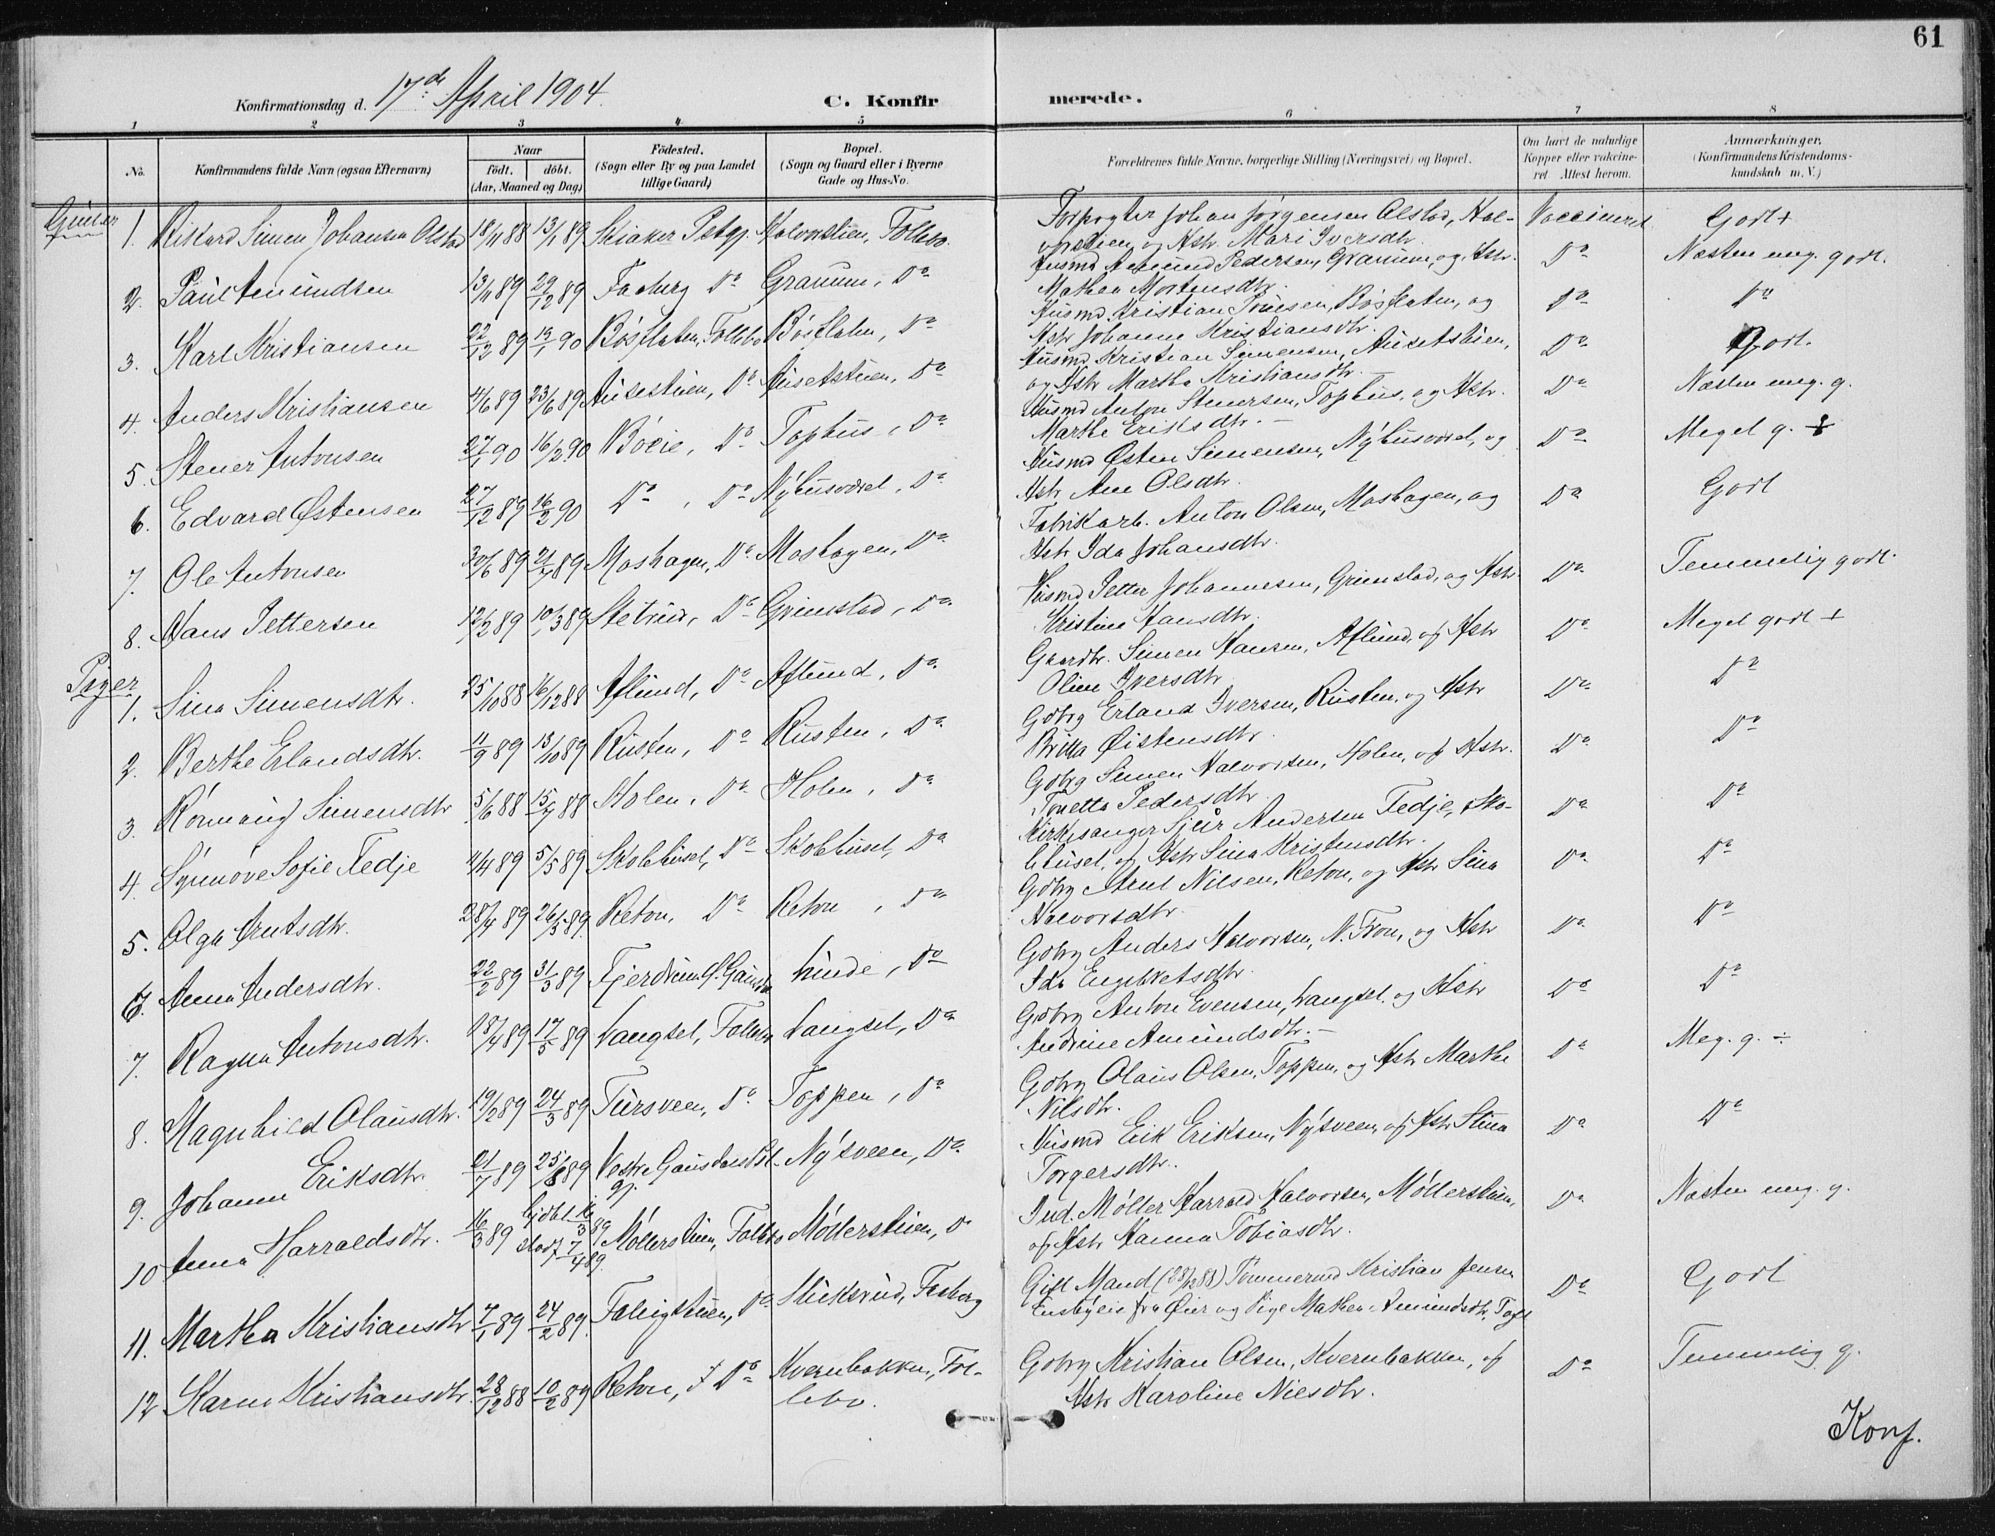 61
Konfirmationsdag d. 17de April 1904. C. Konfirmerede.
1 2 3 4 5 6 7 8
No. Konfirmandens fulde Navn (ogsaa Efternavn) Naar født. døbt. (Aar, Maaned og Dag) Fødested. (Sogn eller By og paa Landet tillige Gaard) Bopæl. (Sogn og Gaard eller i Byerne Gade og Hus-No. Forældrenes fulde Navne, borgerlige Stilling (Næringsvei) og Bopæl. Om havt de naturlige Kopper eller vakcineret. Attest herom. Anmærkninger. (Konfirmandens Kristendomskundskab m. V.)
Gutter
1. Rikard Simen Johansen Olstad 18/11 88 13/1 89 Skiaker Pstgj. Halvorstien, Follebo. Forpagter Johan Jørgensen Olstad, Halvorstien, og Hstr. Mari Iversdtr. Vaccineret Godt +
2. Paul Amundsen 13/11 89 29/12 89 Faaberg Do Granum, Do Husmd Amund Pedersen, Granum, og Hstr. Mathea Mortensdtr. Do Næsten meg. godt.
3. Karl Kristiansen 22/12 89 19/1 90 Bøsflaten, Follebo Bøsflaten, Do Husmd. Kristian Bøsflaten, og Hstr Johanne Kristiansdtr. Do Do
4. Anders Kristiansen 4/6 89 23/6 89 Do Do Husmd Kristian Simensen, og Hstr Marthe Kristiansdtr. Do Godt.
5. Stener Antonsen 27/1 90 16/2 90 Bøeie, Do Tophus, Do Husmd Anton Stenersen, Tophus, og Hstr. Marthe Eriksdtr. Do Næsten meg. g.
6. Edvard Østensen 27/12 89 16/2 90 Do, Do Do Husmd Østen Simensen, og Hstr. Ane Olsdtr. Do Meget g. +
7. Ole Antonsen 30/6 89 21/7 89 Moshagen, Do Moshagen, Do Fabrikarb. Anton Olsen, Moshagen, og Hstr Ida Johansdtr. Do Godt
8. Hans Pettersen 12/2 89 10/3 89 Do Grimstad, Do Husmd Petter Johannesen, Grimstad, og Hstr. Kristine Hansdtr. Do Temmelig godt.
Piger
1. Sina Simensdtr. 25/10 88 16/12 88 Aflund, Do Aflund, Do Gaardbr. Simen Hansen, Aflund, og Hstr Oline Iversdtr. Do Meget godt +
2. Berthe Erlandsdtr. 11/9 89 13/10 89 Rusten, Do Rusten, Do Gdbrg Erland Iversen, Rusten, og Hstr Øistensdtr. Do Do
3. Rønnaug Simensdtr 5/6 88 15/7 88 Holen, Do Holen, Do Gdbrg Simen Halvorsen, Holen, og Hstr. Pedersdtr. Do Do
4. Synnøve Sofie Fedje 4/4 89 5/5 89 Skolehuset, Do Skolehuset, Do Kirkesanger Sjur Andersen Fedje, Skolehuset, og Hstr Sina Kristensdtr. Do Do
5. Olga Arntsdtr. 28/4 89 26/5 89. Do Do Gdbrg Arnt Nilsen, og Hstr Sina Halvorsdtr. Do Do
6. Anna Andersdtr. 22/2 89 31/3 89 Linde, Do Gdbrg Anders Halvorsen, N. Fron, og Hstr Ida Engebretsdtr. Do Do
7. Ragna Antonsdtr. 18/4 89 17/5 89 Langset, Follebo Langset, Do Gdbrg Anton Evensen, Langset, og Hstr Andrine Amundsdtr. Do Do
8. Magnhild Olausdtr. 19/2 89 24/3 89 Tursveen, Do Toppen, Do Gdbrg Olaus Olsen, Toppen, og Hstr Marthe Nilsdtr. Do Meg. g. ÷
9. Johanne Eriksdtr. 21/7 89 25/8 89 Vestre Gausdal Pstgj. Nysveen, Do Husmd Erik Eriksen, Nysveen, og Hstr Stina Torgersdtr. Do Do
10 Anna Harraldsdtr. 16/3 89 hjdbt 16/3 89 stadf 7/4 89. Møllerstuen, Follebo Møllerstuen, Do Ind. Møller Harrald Halvorsen, Møllerstuen, og Hstr Hanna Tobiasdtr. Do Næsten meg. g.
11. Martha Kristiansdtr 7/1 89 24/2 89. Do Slikkerud, Faaberg Gift Mand Tømmermd Kristian Jensen fra Øier og Pige Mathea Amundsdtr. Do Godt
12 Karen Kristiansdtr. 28/12 88 10/2 89 Do Kvernbakken, Follebo. Gdbrg Kristian Olsen, Kvernbakken, og Hstr Karoline Nielsdtr. Do Temmelig g.
Konf.